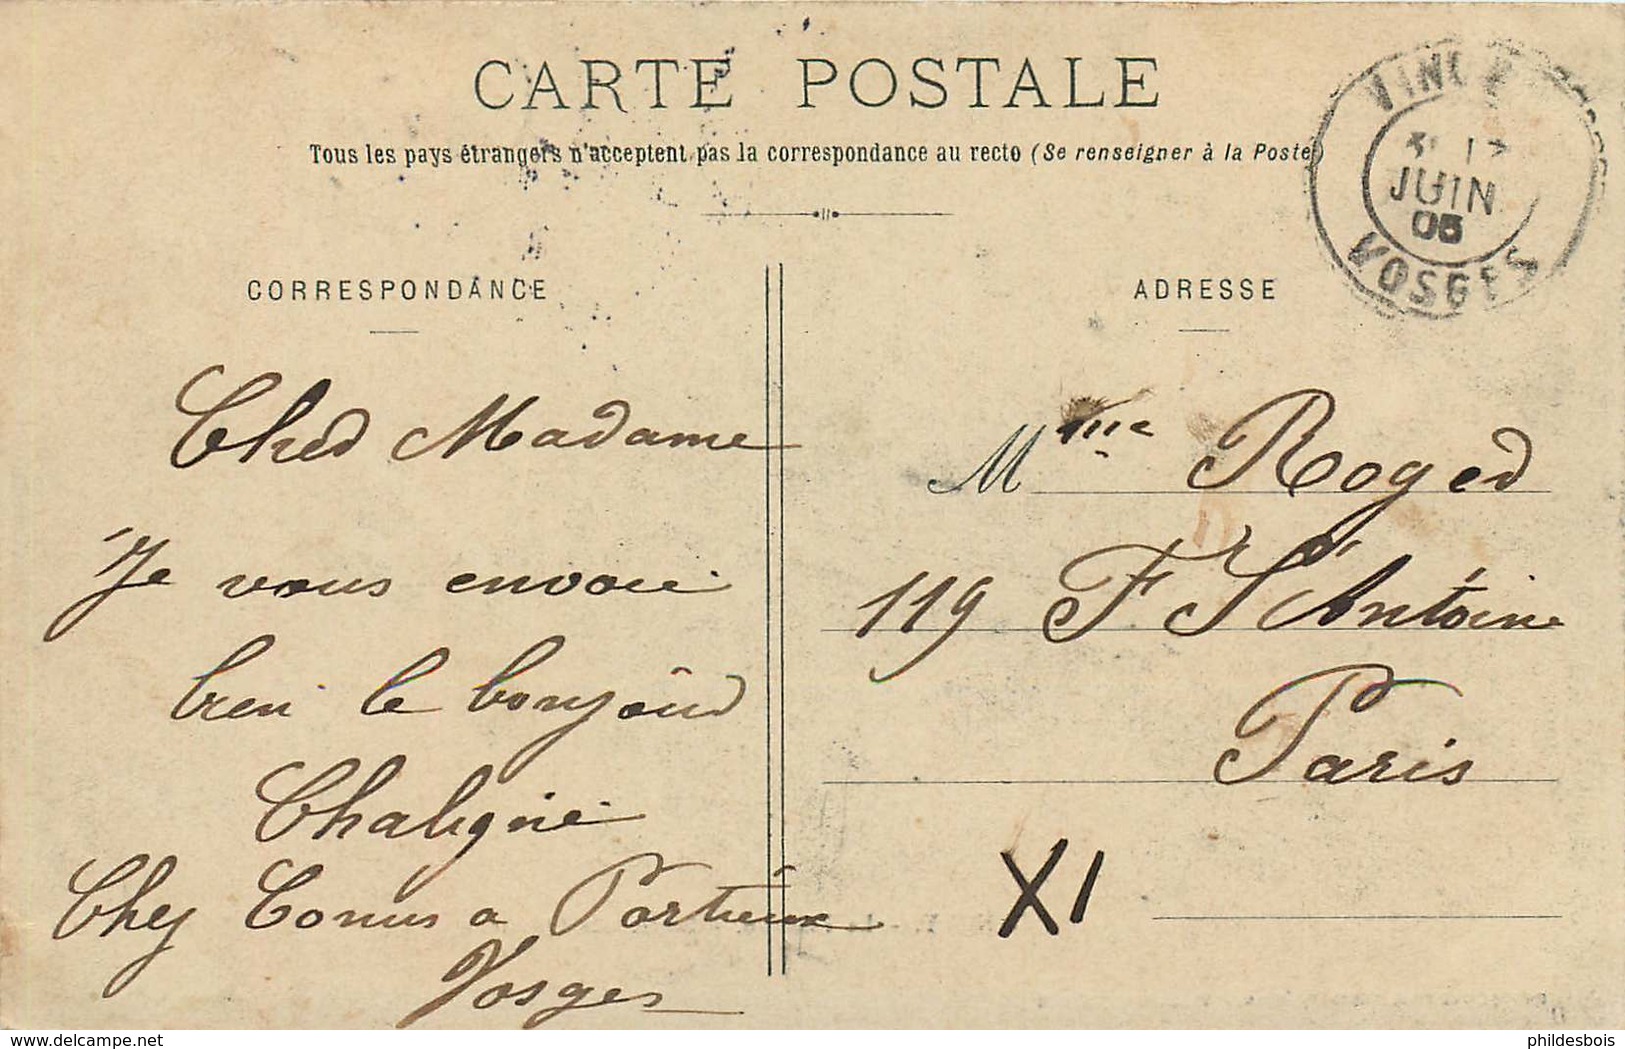 CARTE POSTALE
Tous les pays étrangers n'acceptent pas la correspondance au recto (Se renseigner à la Poste)
JUIN
05
VOSGES
CORRESPONDANCE
ADRESSE
Cher Madame
Je vous envoie
bien le bonjour
Chaligné
Chez Conus a Portieux
Vosges
Mme Roger
119 F St Antoine
Paris
XI
www.delcampe.net
phildesbois